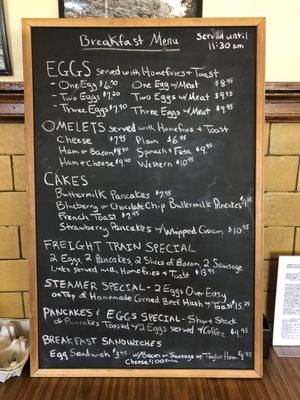 Breakfast Menu
Served until
11:30 am
EGGS served with Homefries & Toast
- One Egg $6.50 One Egg w/Meat $8.95
- Two Eggs $7.20 Two Eggs w/Meat $9.75
- Three Eggs $7.90 Three Eggs w/Meat $9.95
OMELETS served with Homefries & Toast
Cheese $7.95 Plain $6.95
Ham or Bacon Spinach & Feta $9.95
Ham & cheese $9.40 Western $10.95
CAKES
Buttermilk Pancakes $7.95
Blueberry or Chocolate Chip Buttermilk Pancakes
French Toast $7.95
Strawberry Pancakes w/Whipped Cream $10.95
FREIGHT TRAIN SPECIAL
2 Eggs, 2 Pancakes, 2 Slices of Bacon, 2 Sausage
Links served with Homefries & Toast $13.95
STEAMER SPECIAL - 2 Eggs Over Easy
on Top of Homemade Corned Beef Hash w/Toast $15.25
PANCAKES & EGGS SPECIAL - Short Stack
of Pancakes Topped w/2 Eggs served w/Coffee
BREAKFAST SANDWICHES
Egg Sandwich $3.95 w/Bacon or Sausage or Taylor Ham
Cheese $1.00 extra